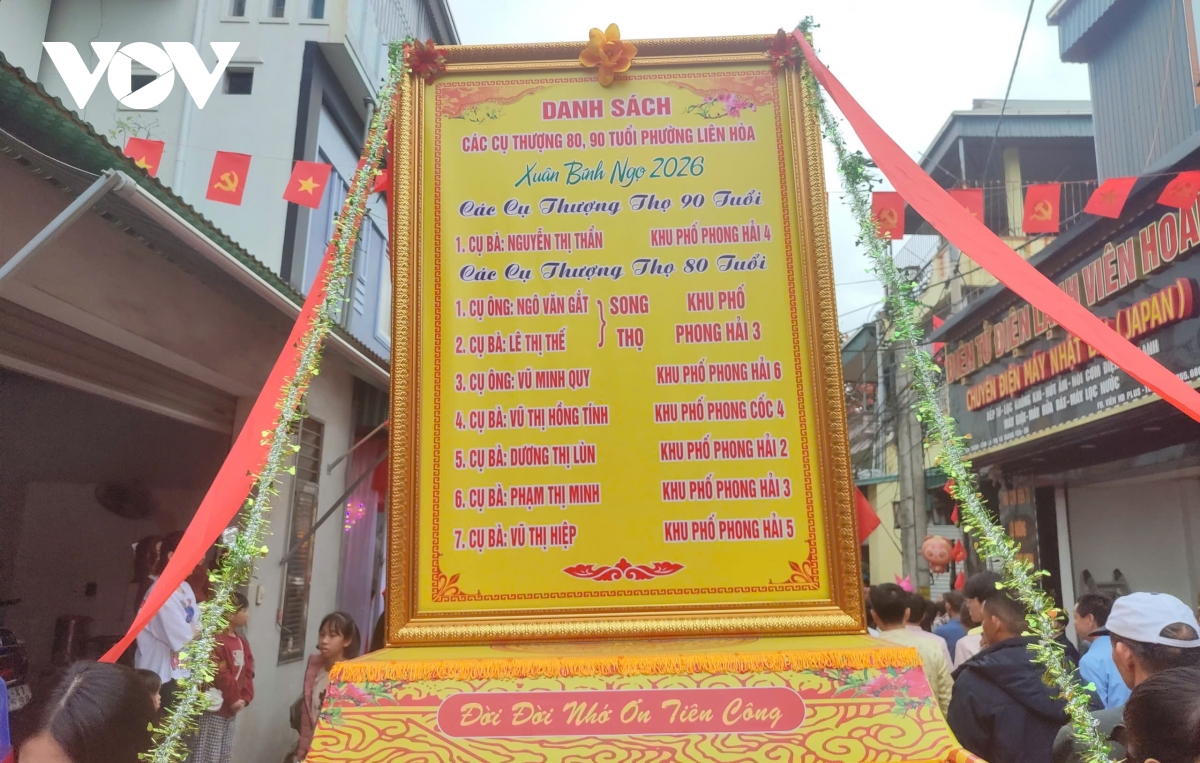 VOV
DANH SÁCH
CÁC CỤ THƯỢNG 80, 90 TUỔI PHƯỜNG LIÊN HÒA
Xuân Bính Ngọ 2026
Các Cụ Thượng Thọ 90 Tuổi
1. CỤ BÀ: NGUYỄN THỊ THẦN KHU PHỐ PHONG HẢI 4
Các Cụ Thượng Thọ 80 Tuổi
1. CỤ ÔNG: NGÔ VĂN GẮT
2. CỤ BÀ: LÊ THỊ THẾ
SONG THỌ
KHU PHỐ PHONG HẢI 3
3. CỤ ÔNG: VŨ MINH QUY KHU PHỐ PHONG HẢI 6
4. CỤ BÀ: VŨ THỊ HỒNG TÍNH KHU PHỐ PHONG CỐC 4
5. CỤ BÀ: DƯƠNG THỊ LÙN KHU PHỐ PHONG HẢI 2
6. CỤ BÀ: PHẠM THỊ MINH KHU PHỐ PHONG HẢI 3
7. CỤ BÀ: VŨ THỊ HIỆP KHU PHỐ PHONG HẢI 5
Đời Đời Nhớ Ơn Tiên Công
ĐIỆN TỬ ĐIỆN LẠNH VIÊN HOA
CHUYÊN ĐIỆN MÁY NHẬT (JAPAN)